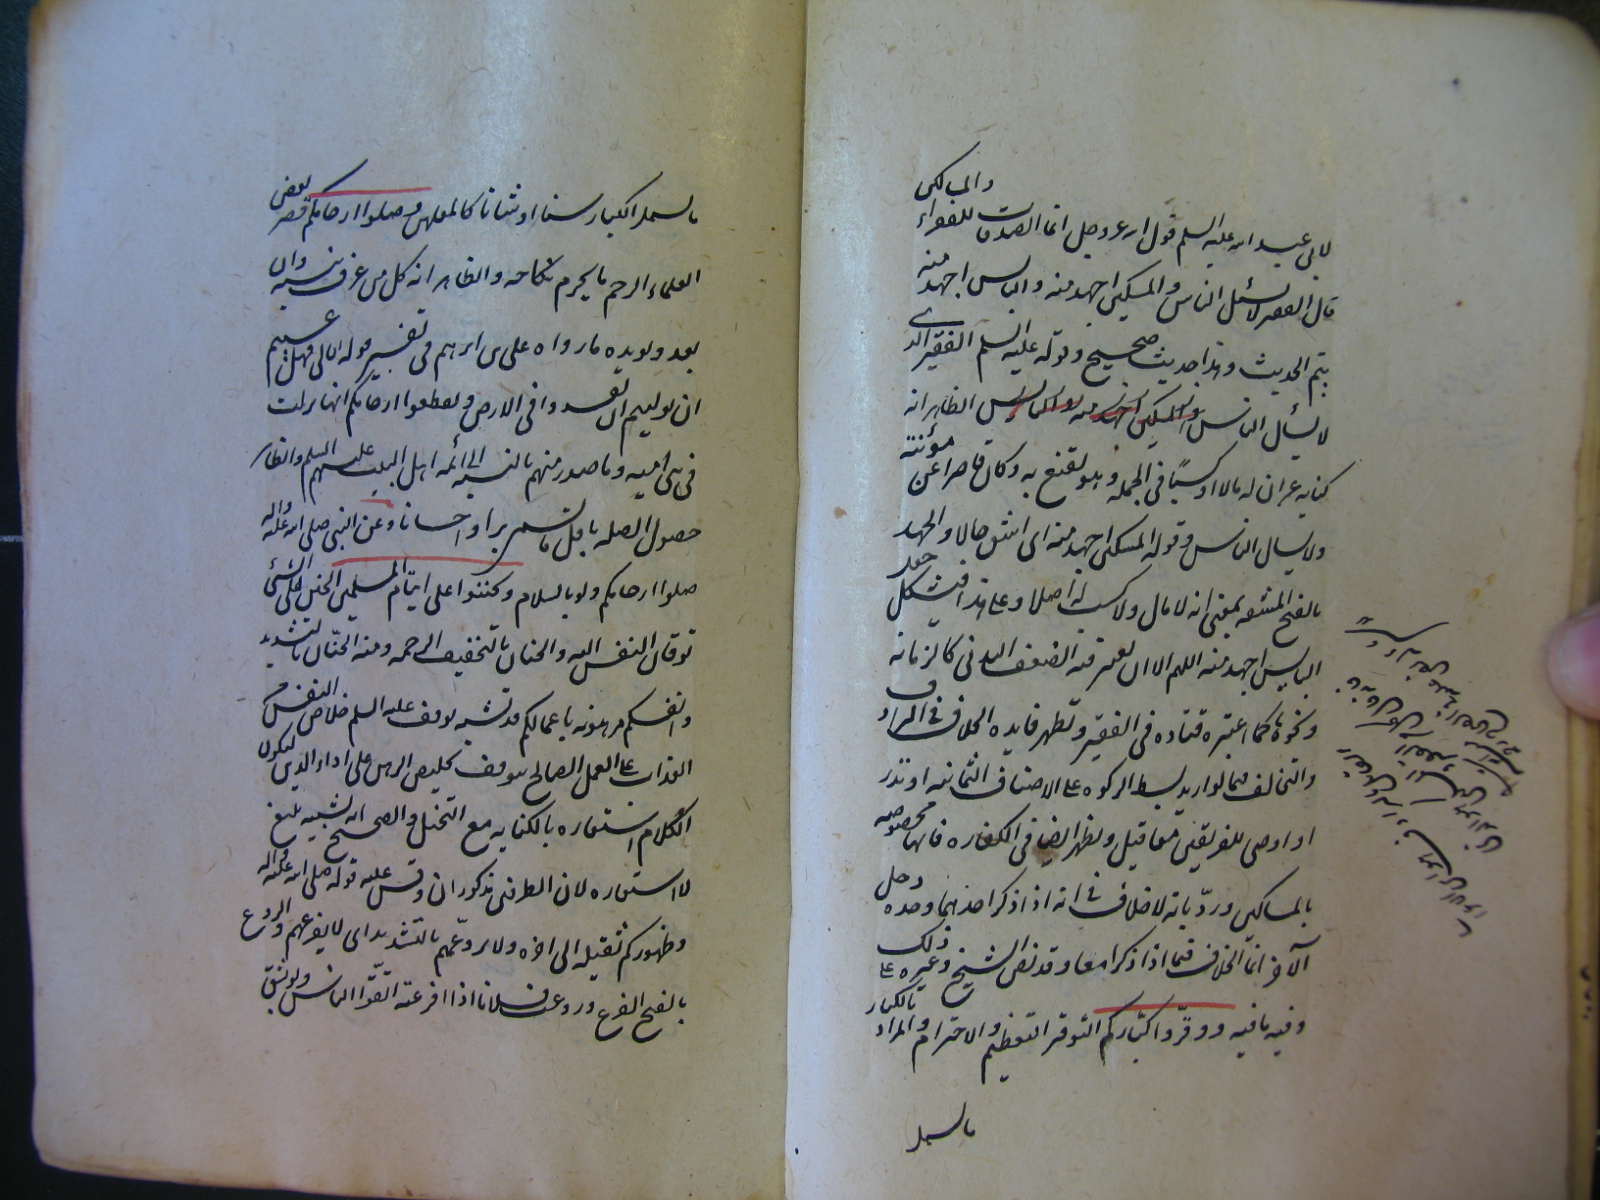 والمساكين
لابى عبد الله عليه السلم قول الله عز وجل انما الصدقات للفقراء
قال الفقير لا يسئل الناس والمسكين اجهد منه والبائس اجهد منه
يتم الحديث وهذا حديث صحيح وقوله عليه السلم الفقير الذى
لا يسأل الناس والمسكين اجهد منه والبائس الظاهر انه
كناية عن ان له مالا او كسبا فى الجملة وهو يقنع به وكان قاصرا عن مؤنته
ولا يسال الناس وقوله المسكين اجهد منه اى اشق حالا والجهد
بالفتح المشقه بمعنى انه لا مال ولا كسب له اصلا وعلى هذا فيشكل جعل
البايس اجهد منه اللهم الا ان يعتبر فيه الضعف البدنى كالزمانه
ونحوها كما اعتبره قتاده فى الفقير وتظهر فايده الخلاف فى
والتخالف فيما لو اريد بسط الزكوه على الاصناف الثمانيه او نذر
او اوصى للفريقين معا قيل ويظهر ايضا فى الكفاره فانها مخصوصه
بالمساكين وردّ بانه لا خلاف فى انه اذا ذكر احدهما وحده دخل
الآخر انما الخلاف فيما اذا ذكرا معا وقد نص الشيخ وغيره على ذلك
وفيه ما فيه ووقّروا كباركم التوقير التعظيم والاحترام والمراد بالكبار
ما يشمل
ما يشمل الكبار سنا او شانا كالمعلمين وصلوا ارحامكم قصر بعض
العلماء الرحم بما يحرم نكاحه والظاهر انه كل من عرف بنسبه وان
بعد ويؤيده ما رواه على بن ابرهيم فى تفسير قوله تعالى فهل عسيتم
ان توليتم ان تفسدوا فى الارض وتقطعوا ارحامكم انها نزلت
فى بنى اميه وما صدر منهم بالنسبه الى ائمه اهل البيت عليهم السلم والظاهر
حصول الصله باقل ما يسمى برا واحسانا وعن النبى صلى الله عليه واله
صلوا ارحامكم ولو بالسلام وتحننوا على ايتام المسلمين الحنين الى الشئ
توقان النفس اليه والحنان بالتخفيف الرحمه ومنه الحنّان بالتشديد
وانفسكم مرهونه باعمالكم قد تشبه توقف عليه السلم خلاص النفس من
العذاب على العمل الصالح بتوقف تخليص الرهن على اداء الدين ليكون
الكلام استعاره بالكنايه مع التخييل والصحيح انه تشبيه بليغ
لا استعاره لان الطرفين مذكوران وقس عليه قوله صلى الله عليه واله
وظهوركم ثقيله الى اخره ولا يروّعهم بالتشديد اى لا يفزعهم والروع
بالفتح الفزع وروعت فلانا اذا افزعته اتقوا النار ولو بشق